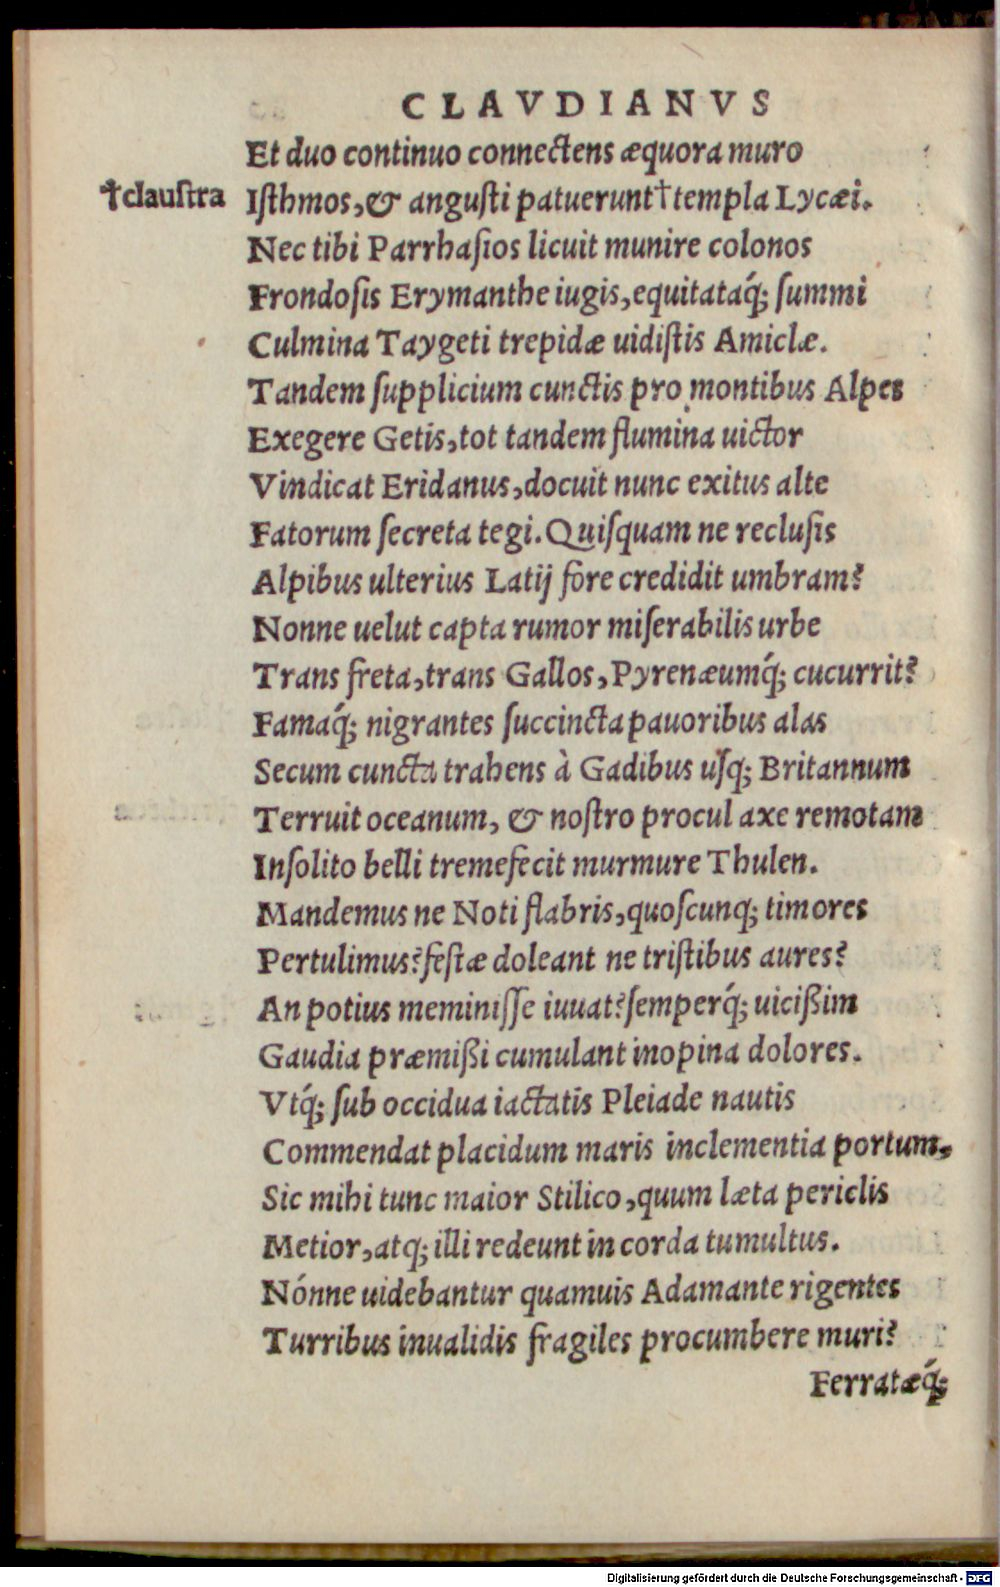 CLAVDIANVS
Et duo continuo connectens æquora muro
†clauſtra
Iſthmos, & anguſti patuerunt† templa Lycæi.
Nec tibi Parrhaſios licuit munire colonos
Frondoſis Erymanthe iugis, equitataq́; ſummi
Culmina Taygeti trepidæ uidiſtis Amiclæ.
Tandem ſupplicium cunctis pro montibus Alpes
Exegere Getis, tot tandem flumina uictor
Vindicat Eridanus, docuit nunc exitus alte
Fatorum ſecreta tegi. Quiſquam ne recluſis
Alpibus ulterius Latij fore credidit umbram?
Nonne uelut capta rumor miſerabilis urbe
Trans freta, trans Gallos, Pyrenæumq́; cucurrit?
Famaq́; nigrantes ſuccincta pauoribus alas
Secum cuncta trahens à Gadibus uſq; Britannum
Terruit oceanum, & noſtro procul axe remotam
Inſolito belli tremefecit murmure Thulen.
Mandemus ne Noti flabris, quoſcunq; timores
Pertulimus? feſtæ doleant ne triſtibus aures?
An potius meminiſſe iuuat? ſemperq́; uicißim
Gaudia præmißi cumulant inopina dolores.
Vtq́; ſub occidua iactatis Pleiade nautis
Commendat placidum maris inclementia portum,
Sic mihi tunc maior Stilico, quum læta periclis
Metior, atq; illi redeunt in corda tumultus.
Nónne uidebantur quamuis Adamante rigentes
Turribus inualidis fragiles procumbere muri?
Ferratæq́;
Digitalisierung gefördert durch die Deutsche Forschungsgemeinschaft - DFG